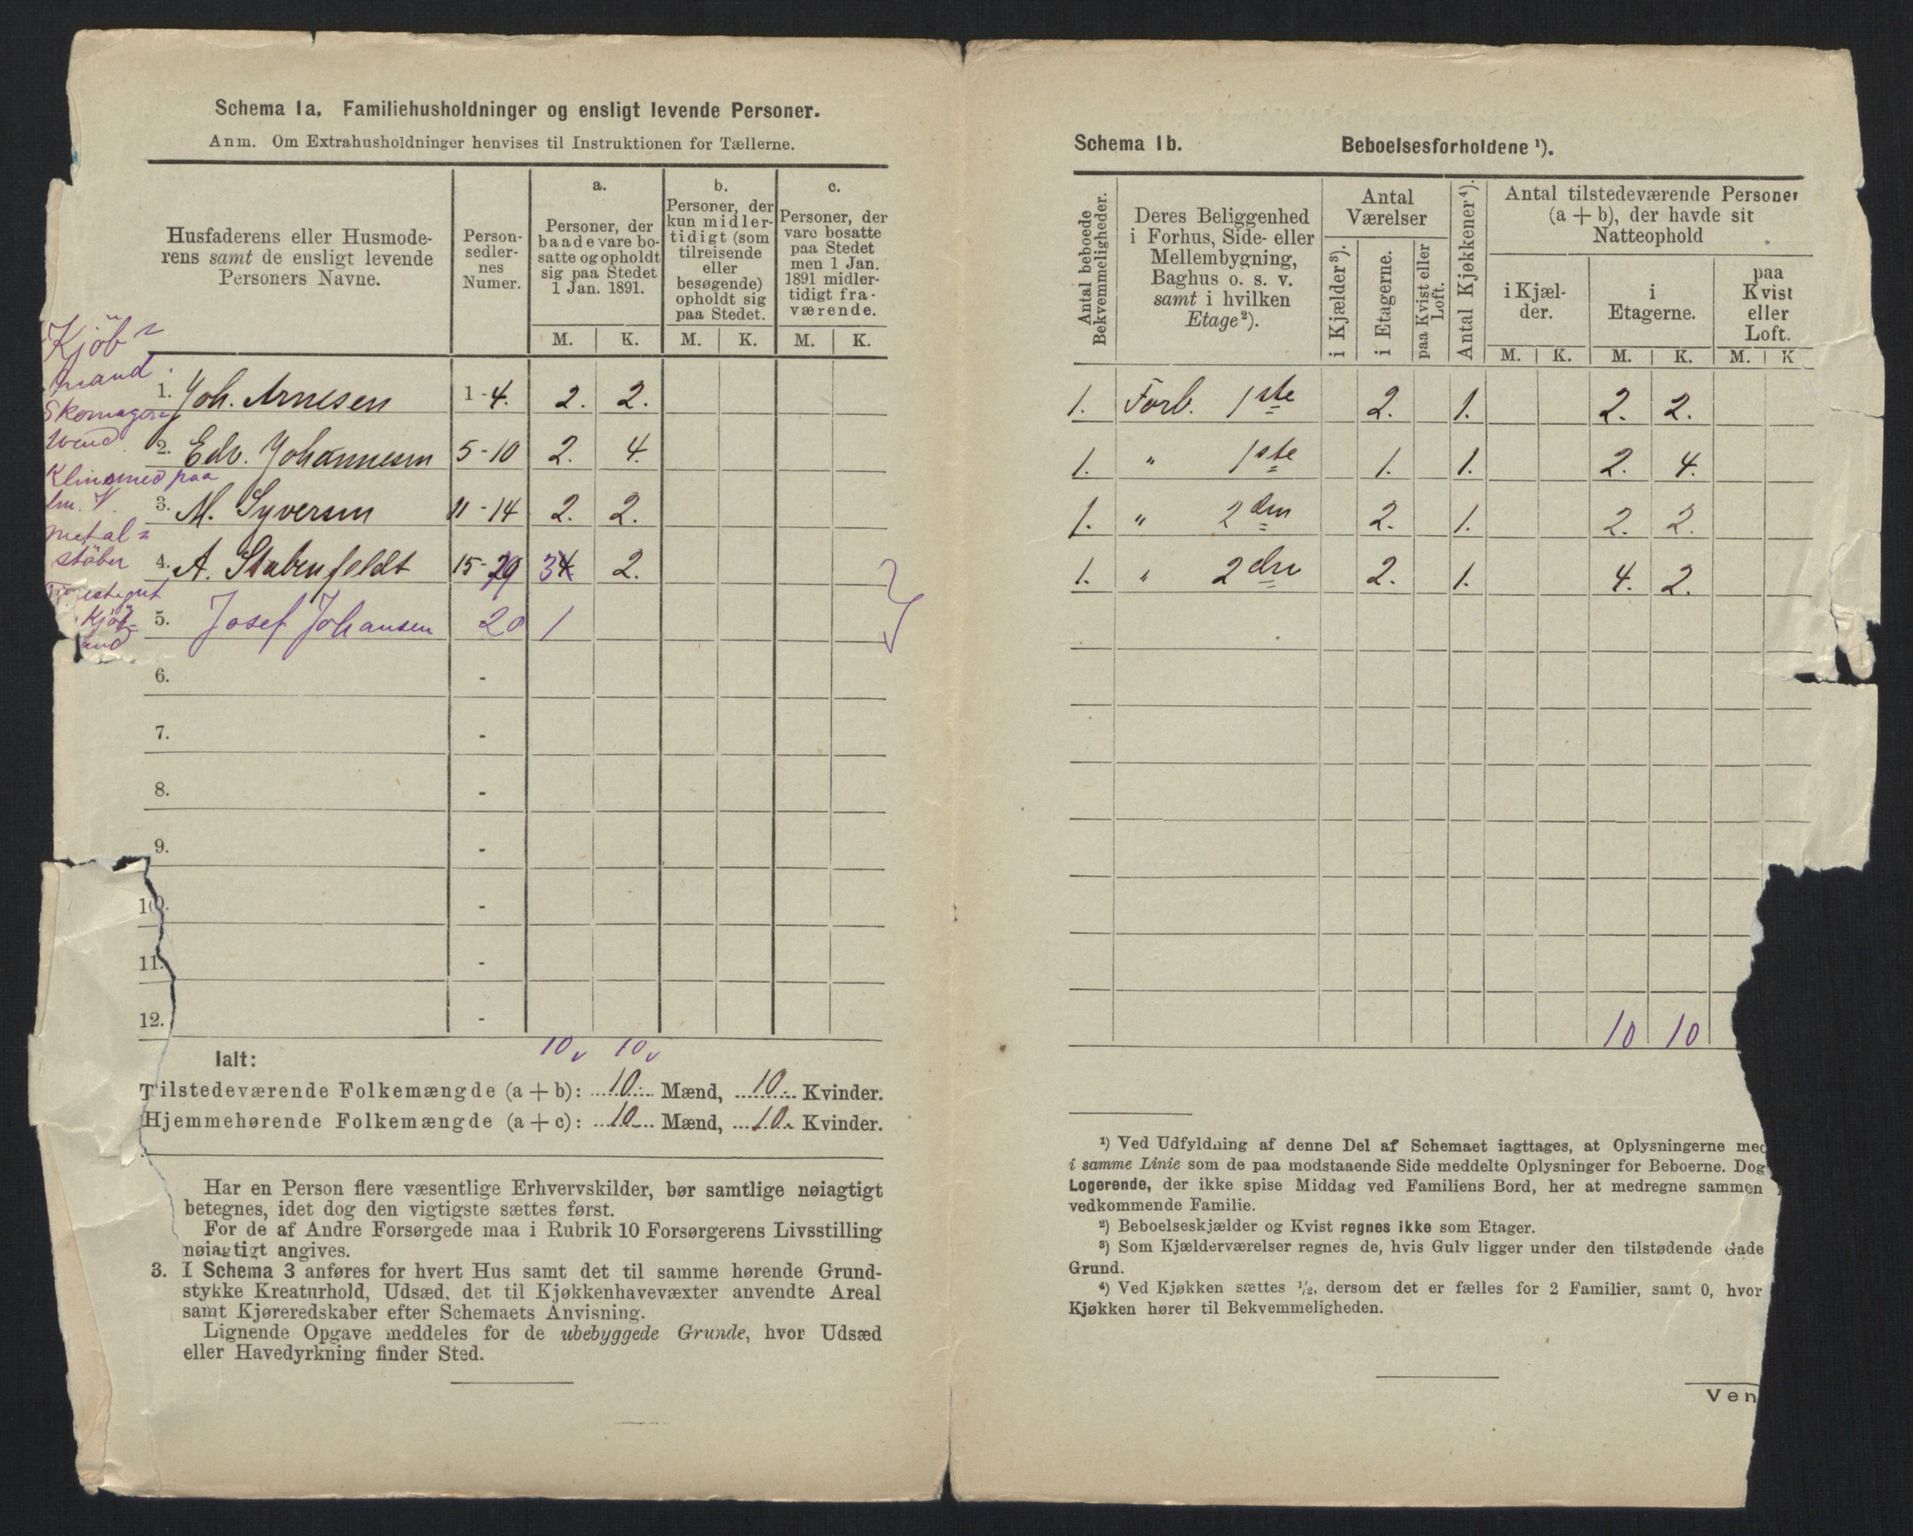 Schema 1a. Familiehusholdninger og ensligt levende Personer.
Anm. Om Extrahusholdninger henvises til Instruktionen for Tællerne.
Husfaderens eller Husmode-
rens samt de ensligt levende
Personers Navne.
Person-
sedler-
nes
Numer.
a.
Personer, der
baade vare bo-
satte og opholdt
sig paa Stedet
1 Jan. 1891.
b.
Personer, der
kun midler-
tidigt (som
tilreisende
eller
besøgende)
opholdt sig
paa Stedet.
c.
Personer, der
vare bosatte
paa Stedet
men 1 Jan.
1891 midler-
tidigt fra-
værende.
M. K. M. K. M. K.
Kjöb=
mand.
1. Joh. Arnesen 1-4. 2. 2.
Skomager
svend.
2. Edv. Johannesen 5-10 2. 4.
paa
3. M. Syversen 11-14 2. 2.
Metal=
stöber
4. A. Stabenfeldt 15- 34 2.
5. Josef Johansen 20 1
6. -
7. -
8. -
9. -
10. -
11. -
12. -
Ialt: 10 v 10 v
Tilstedeværende Folkemængde (a + b): 10. Mænd, 10. Kvinder.
Hjemmehørende Folkemængde (a + c): 10 Mænd, 10. Kvinder.
Har en Person flere væsentlige Erhvervskilder, bør samtlige nøiagtigt
betegnes, idet dog den vigtigste sættes først.
For de af Andre Forsørgede maa i Rubrik 10 Forsørgerens Livsstilling
nøiagtigt angives.
3. I Schema 3 anføres for hvert Hus samt det til samme hørende Grund-
stykke Kreaturhold, Udsæd, det til Kjøkkenhavevæxter anvendte Areal
samt Kjøreredskaber efter Schemaets Anvisning.
Lignende Opgave meddeles for de ubebyggede Grunde, hvor Udsæd
eller Havedyrkning finder Sted.
Schema 1b. Beboelsesforholdene ¹).
Antal beboede
Bekvemmeligheder.
Deres Beliggenhed
i Forhus, Side- eller
Mellembygning,
Baghus o. s. v.
samt i hvilken
Etage²).
Antal
Værelser
i Kjælder³).
i Etagerne.
paa Kvist eller
Loft.
Antal Kjøkkener⁴).
Antal tilstedeværende Personer
(a + b), der havde sit
Natteophold
i Kjæl-
der.
i
Etagerne.
paa
Kvist
eller
Loft.
M. K. M. K. M. K
1. Forb. 1ste 2. 1. 2. 2.
1. " 1ste 1. 1. 2. 4.
1. " 2den 2. 1. 2. 2.
1. " 2den 2. 1. 4. 2.
10 10
¹) Ved Udfyldning af denne Del af Schemaet iagttages, at Oplysningerne med
i samme Linie som de paa modstaaende Side meddelte Oplysninger for Beboerne. Dog
Logerende, der ikke spise Middag ved Familiens Bord, her at medregne sammen
vedkommende Familie.
²) Beboelseskjælder og Kvist regnes ikke som Etager.
³) Som Kjælderværelser regnes de, hvis Gulv ligger under den tilstødende Gade
Grund.
⁴) Ved Kjøkken sættes ¹/₂, dersom det er fælles for 2 Familier, samt 0, hvor
Kjøkken hører til Bekvemmeligheden.
Ven